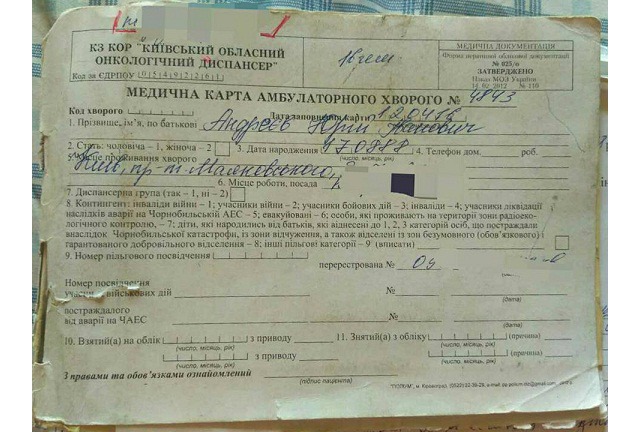 КЗ КОР "КИЇВСЬКИЙ ОБЛАСНИЙ
ОНКОЛОГІЧНИЙ ДИСПАНСЕР"
Код за ЄДРПОУ
МЕДИЧНА ДОКУМЕНТАЦІЯ
Форма первинної облікової документації
№ 025/о
ЗАТВЕРДЖЕНО
Наказ МОЗ України
14. 02. 2012 № 110
МЕДИЧНА КАРТА АМБУЛАТОРНОГО ХВОРОГО № 4843
Код хворого Дата заповнення карти 120418
1. Прізвище, ім'я, по батькові Андрєєв Юрій Іванович
2. Стать: чоловіча – 1, жіноча – 2 3. Дата народження 170888 4. Телефон дом. роб.
(число, місяць, рік)
5. Місце проживання хворого Київ, пр-т Маяковського,
6. Місце роботи, посада
7. Диспансерна група (так – 1, ні – 2)
8. Контингент: інваліди війни – 1; учасники війни – 2; учасники бойових дій – 3; інваліди – 4; учасники ліквідації
наслідків аварії на Чорнобильській АЕС – 5; евакуйовані – 6; особи, які проживають на території зони радіоеко-
логічного контролю, – 7; діти, які народились від батьків, які віднесені до 1, 2, 3 категорій осіб, що постраждали
внаслідок Чорнобильської катастрофи, із зони відчуження, а також відселені із зон безумовного (обов'язкового) і
гарантованого добровільного відселення – 8; інші пільгові категорії – 9 (вписати)
9. Номер пільгового посвідчення перереєстрована № 09
Номер посвідчення
учасника військових дій №
(дата)
постраждалого
від аварії на ЧАЕС №
(дата)
10. Взятий(а) на облік з приводу 11. Знятий(а) з обліку (причина)
(число, місяць, рік) (число, місяць, рік)
з приводу (причина)
(число, місяць, рік) (число, місяць, рік)
З правами та обов'язками ознайомлений
(підпис пацієнта)